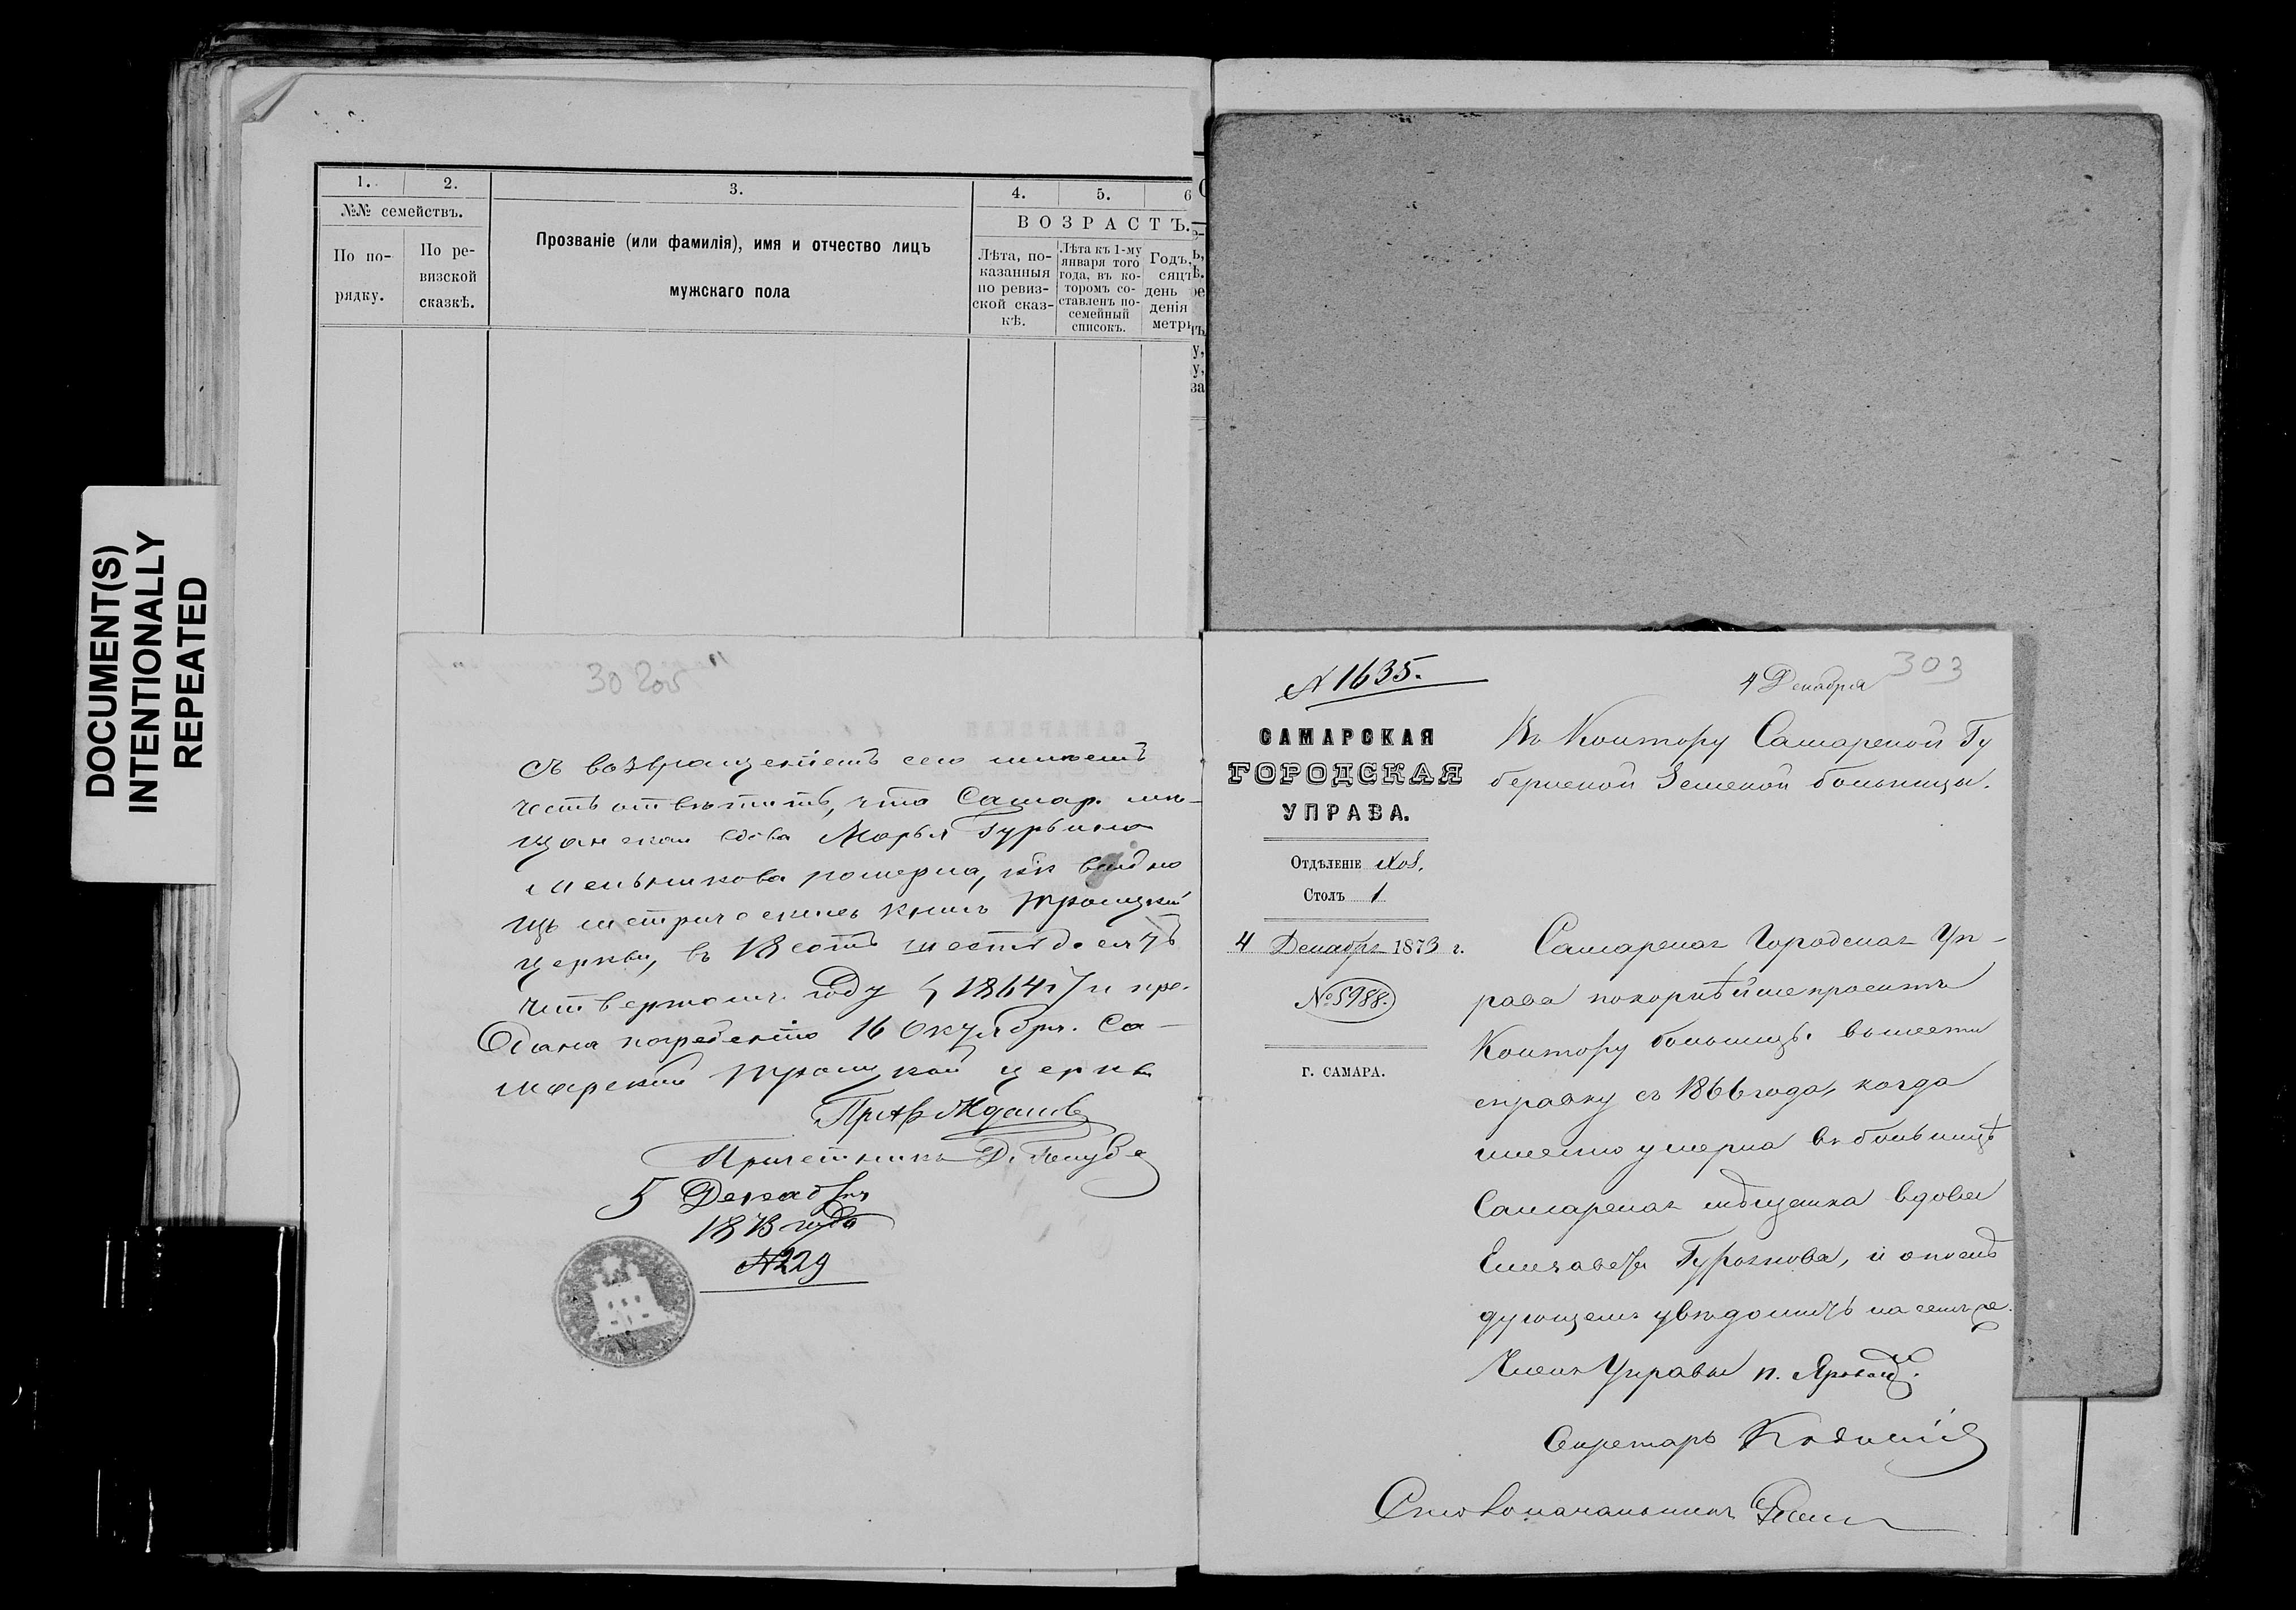 DOCUMENT(S)
INTENTIONALLY
REPEATED
1.
2.
3.
4.
5.
6
№№ семействъ.
По по-
рядку.
По ре-
визской
сказкѣ.
Прозваніе (или фамилія), имя и отчество лицъ
мужскаго пола
ВОЗРАСТЪ.
Лѣта, по-
казанныя
по ревиз-
ской сказ-
кѣ.
Лѣта къ 1-му
января того
года, въ ко-
торомъ со-
ставленъ по-
семейный
списокъ.
Годъ,
сяцъ
день
денія
метри
302об
съ возвращеніемъ сего имѣемъ
честь отвѣтить, что Самар. мѣ-
щанская вдова Марья Гурьина
Мельникова померла, как видно
изъ метрическихъ книгъ Троицкой
церкви, въ 18 сотъ шестьдесятъ
четвертомъ году (1864 г) и пре-
дана погребенію 16 Октября. Са-
марской Троицкой церкви
Причетникъ Д.
5 Декабря
1873 года
№229
№ 1635.
303
4 Декабря
САМАРСКАЯ
ГОРОДСКАЯ
УПРАВА.
Отдѣленіе
Столъ 1
4 Декабря 1873 г.
№5988.
Г. САМАРА.
Въ Контору Самарской Гу
бернской Земской больницы.
Самарская Городская Уп-
рава покорнѣйше проситъ
Контору больницы вывести
справку съ 1866 года, когда
именно умерла въ больницѣ
Самарская мѣщанка вдова
Елизавета Гурьянова, и о послѣ
дующемъ увѣдомить на семъ же.
Членъ Управы п.
Секретарь
Столоначальникъ